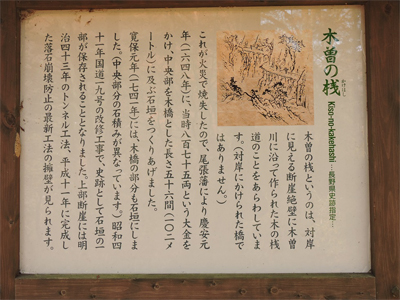 木曽の桟
かけはし
Kiso-no-kakehashi
―長野県史跡指定―
木曽の桟というのは、対岸
に見える断崖絶壁に木曽
川に沿って作られた木の桟
道のことをあらわしていま
す。(対岸にかけられた橋で
はありません。)
これが火災で焼失したので、尾張藩により慶安元
年(一六四八年)に、当時八百七十五両という大金を
かけ、中央部を木橋とした長さ五十六間(一〇二メ
ートル)に及ぶ石垣をつくりあげました。
寛保元年(一七四一年)には、木橋の部分も石垣にしま
した。(中央部分の石積みが異なっています。)昭和四
十一年国道一九号の改修工事で、史跡として石垣の一
部が保存されることとなりました。上部断崖には明
治四十三年のトンネル工法、平成十一年に完成し
た落石崩壊防止の最新工法の擁壁が見られます。